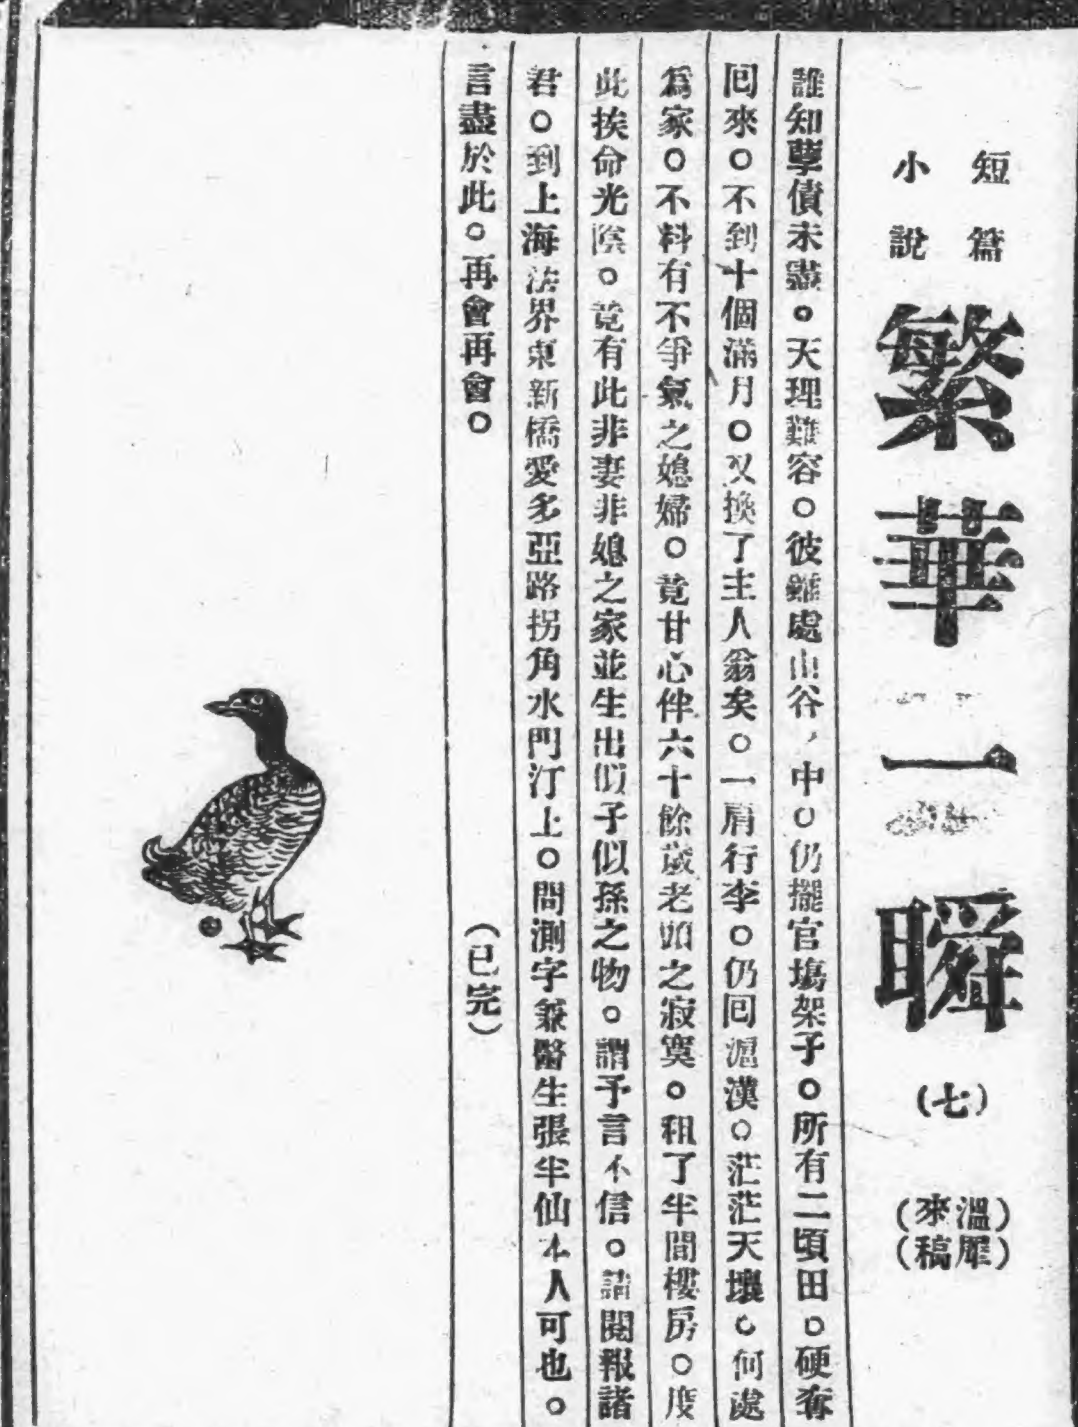 短篇
小說
繁華一瞬
(七)
(溫犀)
(來稿)
誰知孽債未盡。天理難容。彼雖處山谷中。仍擺官塲架子。所有二頃田。硬奪
回來。不到十個滿月。又換了主人翁矣。一肩行李。仍回滬漢。茫茫天壤。何處
爲家。不料有不爭氣之媳婦。竟甘心伴六十餘歲老頭之寂寞。租了半間樓房。度
此挨命光陰。竟有此非妻非媳之家並生出似子似孫之物。謂予言不信。請閱報諸
君。到上海法界東新橋愛多亞路拐角水門汀上。問測字兼醫生張半仙本人可也。
言盡於此。再會再會。
(已完)